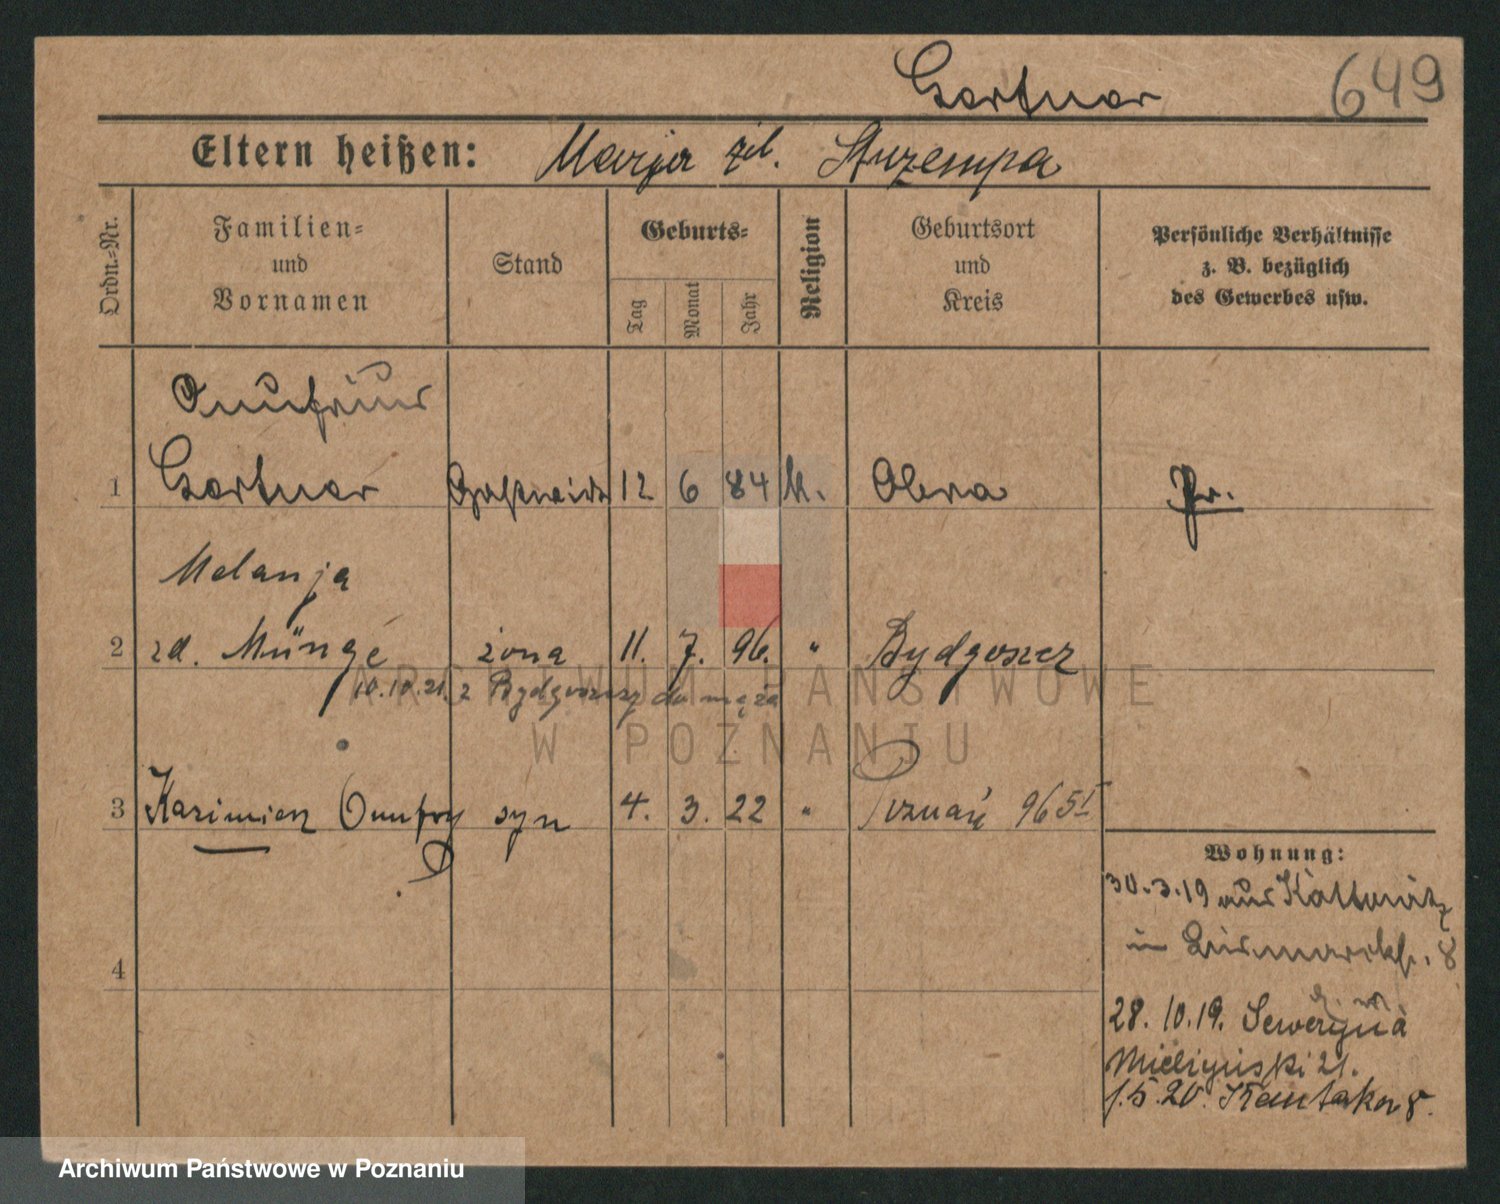 Gartner 649
Eltern heißen: Marja
Ordn.-Nr.
Familien- und Vornamen
Stand
Geburts-
Tag
Monat
Jahr
Religion
Geburtsort und Kreis
Persönliche Verhältnisse
z. B. bezüglich
des Gewerbes usw.
1 Gartner 12 6 84 k. Obra Pr.
Melanja
2 zd. Müngé żona 11. 7. 96. " Bydgoszcz
10.10.21. z Bydgoszczy do męża
3 Kazimierz Onufry syn 4. 3. 22 " Poznań 965I
Wohnung:
30.3.19 aus Kattowitz
in Bismarckst. 8
28.10.19. Seweryna
Mielżyński 21.
1.5.20. Kantaka 8.
4
ARCHIWUM PAŃSTWOWE
W POZNANIU
Archiwum Państwowe w Poznaniu